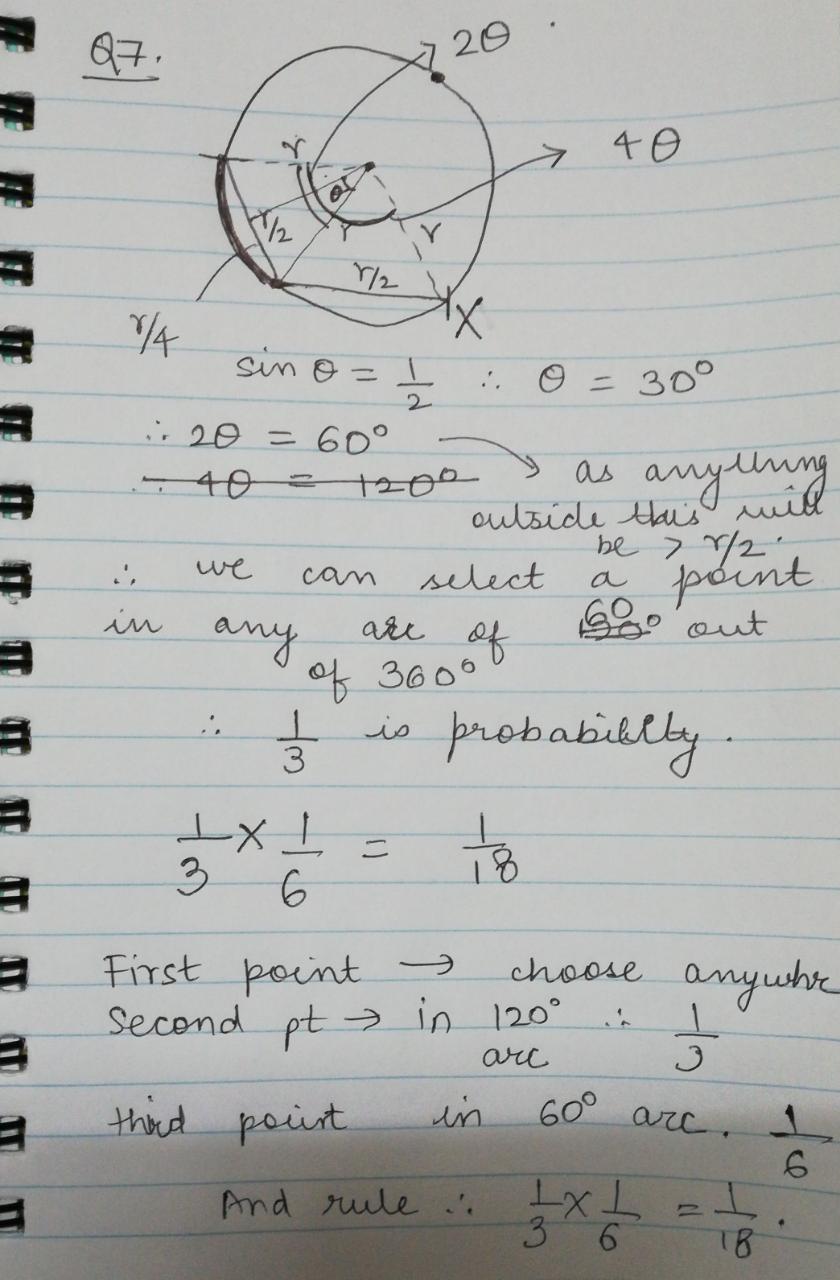 Q7.
2θ
4θ
r
θ
r/2
r
r
r/2
r/4
X
sin θ = 1/2 ∴ θ = 30°
∴ 2θ = 60°
∴ 4θ = 120°
as anything
outside this will
be > r/2.
∴ we can select a point
in any arc of 60° out
of 360°
∴ 1/3 is probability.
1/3 × 1/6 = 1/18
First point → choose anywhr
Second pt → in 120° ∴ 1/3
arc
third point in 60° arc. 1/6
And rule ∴ 1/3 × 1/6 = 1/18.